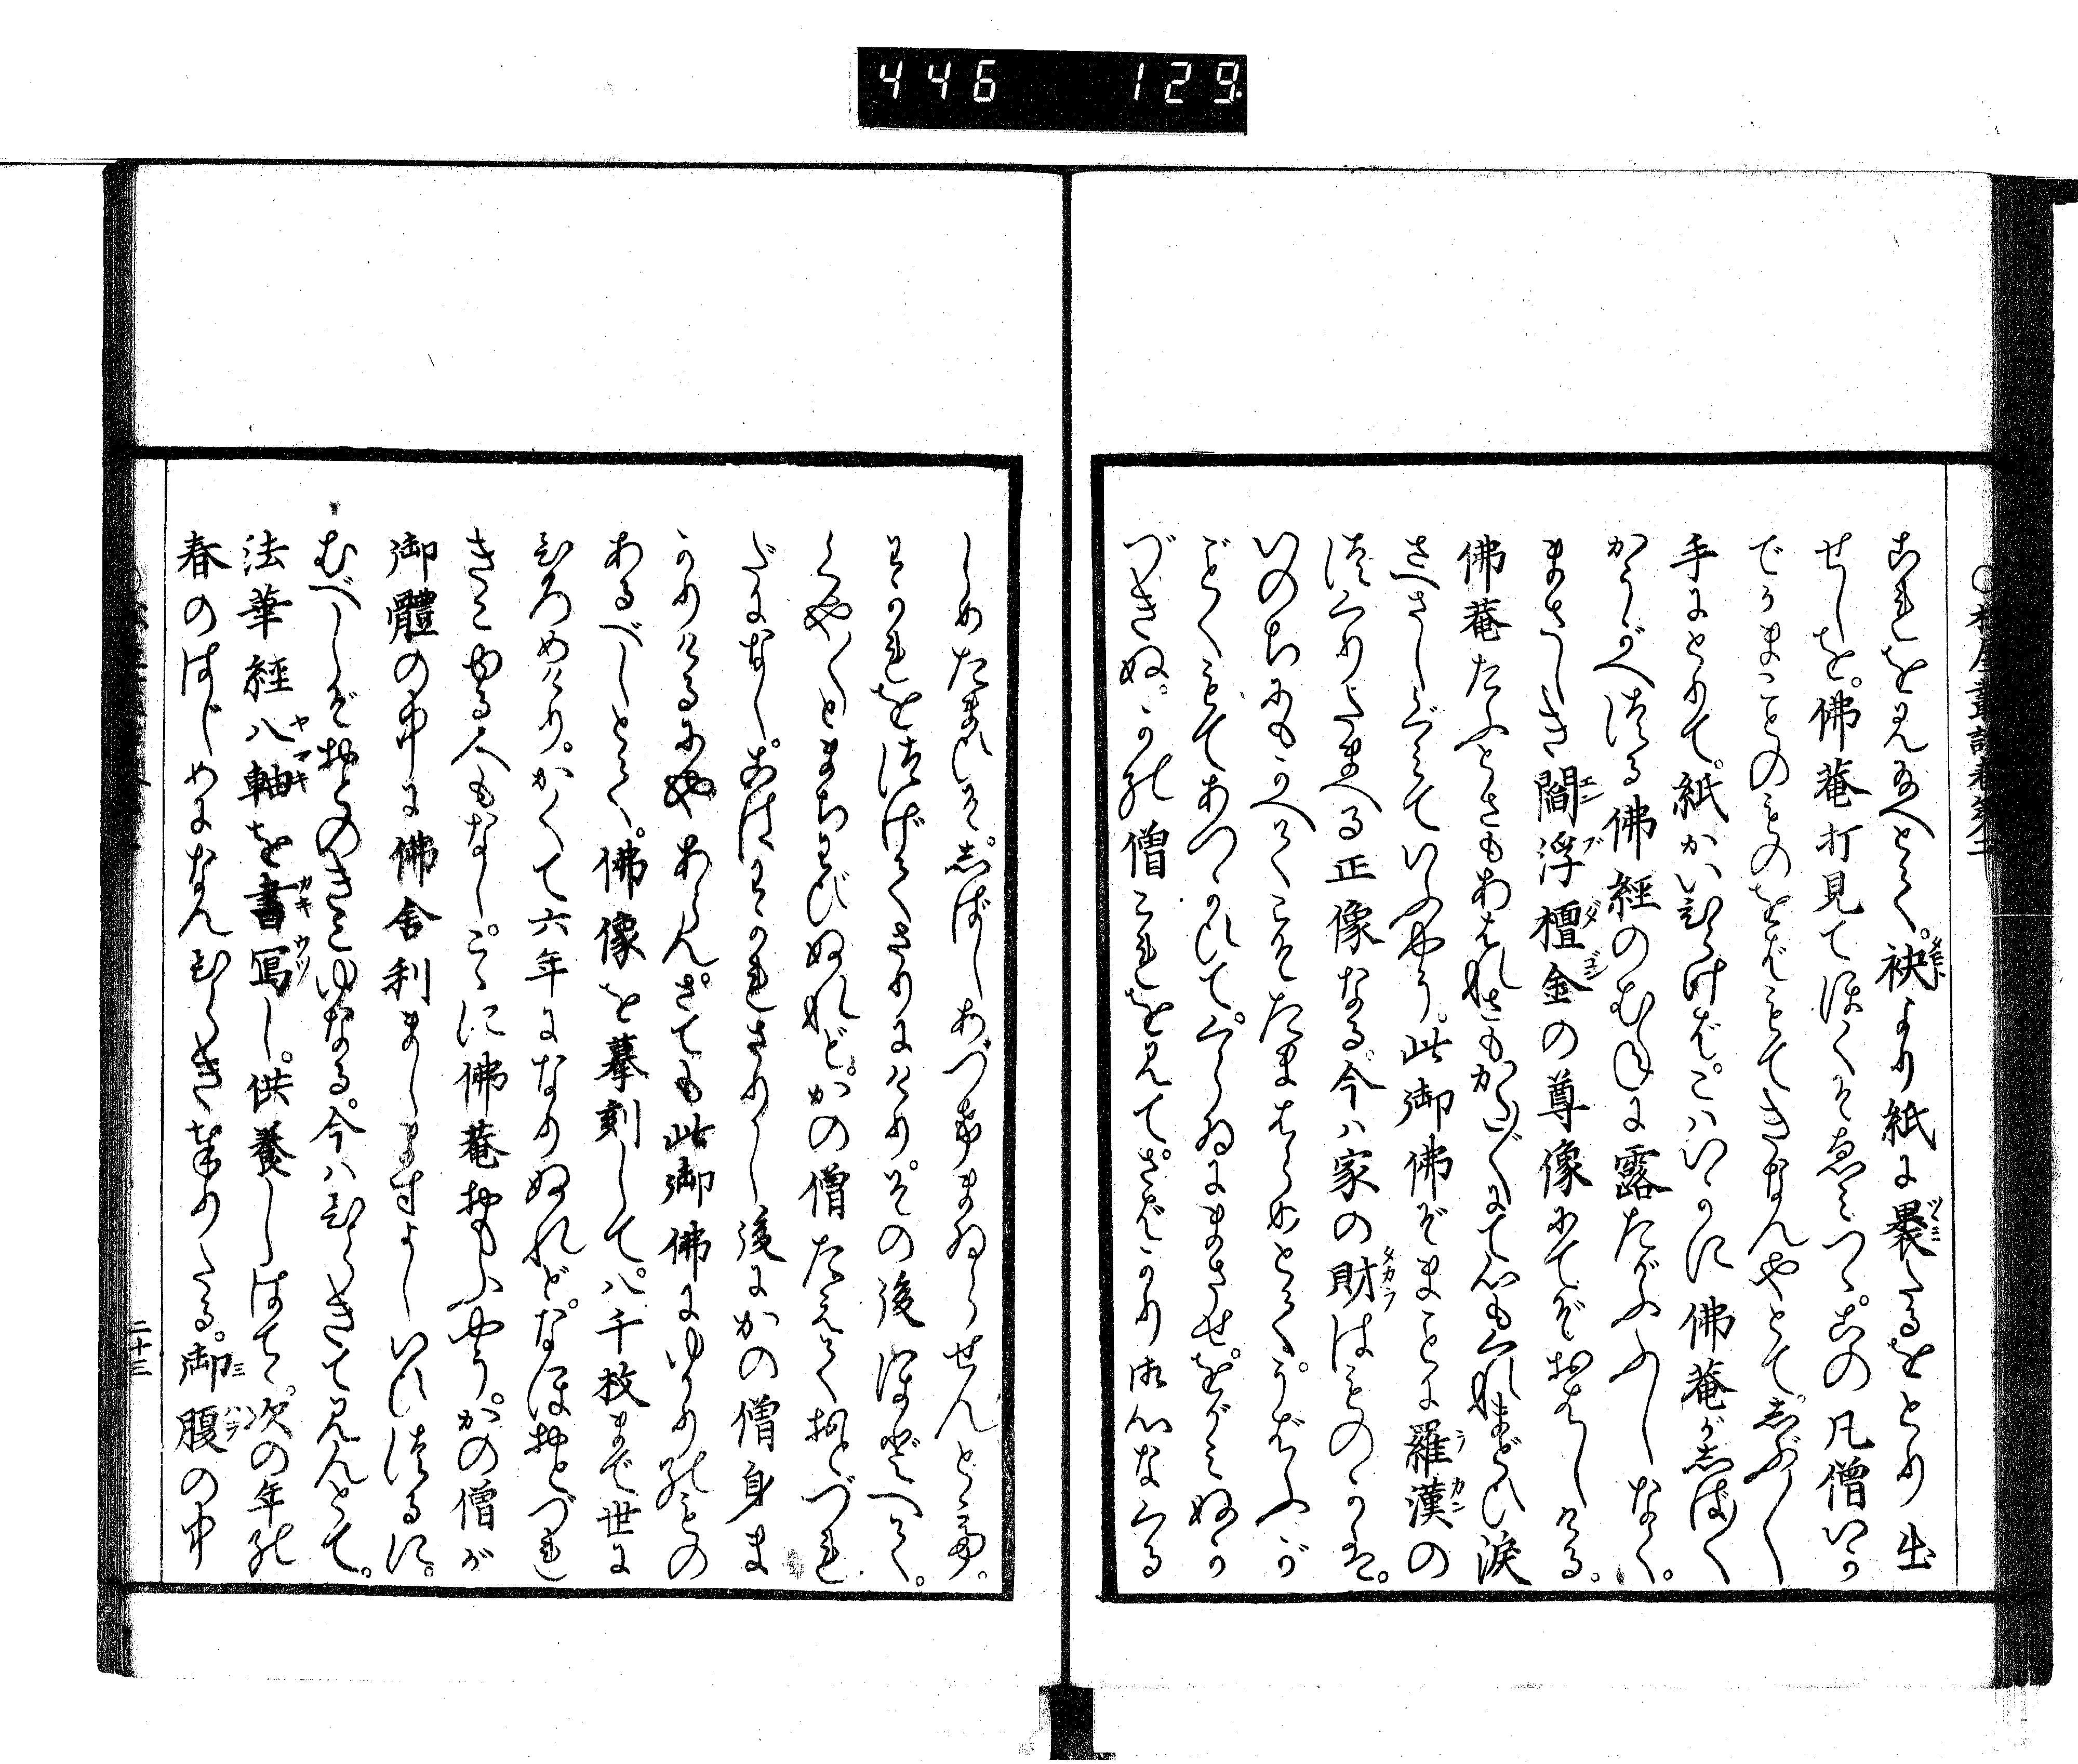 446 129.
これを見給へとて。袂より紙に裹たるをとり出
せしを。佛菴打見てほくそゑみつゝ。この凡僧いか
でかまことのものをばもてきなんやとて。しぶ〳〵
手にとりて。紙かいひらけば。こハいかに佛菴がしばしば
かうがへつる佛經のむねに露たがふふしなく。
まさしき閻浮檀金の尊像にてぞおはしける。
佛菴たふとさもあはれさもかた〴〵にて心もくれまどひ涙
さへさしぐみていふやう。此御佛ぞまことに羅漢の
つくりたまへる正像なる。今ハ家の財はものかは。
いのちにもかへてこそたまはらめとて。うばふが
ごとくもてあつかひて。くらゐにまさせをがみぬか
づきぬ。かの僧これを見て。さばかり御心なくる
しめたまひそ。しばしあづけまゐらせんとて。
そのかれを
くや〳〵とまちわびぬれど。かの僧たえておとづれ
だになし。こはそのかれさりし後にかの僧身ま
かりけるにやあらん。さても此御佛にゆかりのもの
あるべしとて。佛像を摹刻して。八千枚まで世に
ひろめけり。かくて六年になりぬれど。なほおとづれ
きこゆる人もなし。こゝに佛菴おもふやう。かの僧が
御體の中に佛舍利ましますよしいひつるに。
むべしぞおとのきこゆなる。今ハひらきて見んとて。
法華經八軸を書冩し。供養しはて。次の年の
春のはじめになんひらき奉りたる。御腹の中
二十三